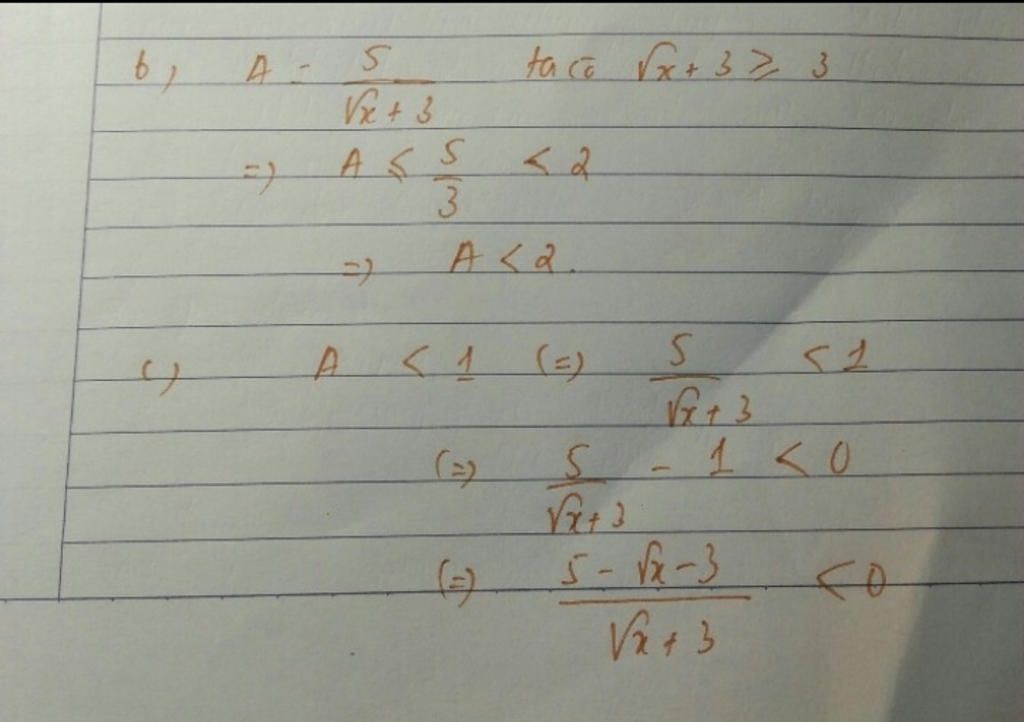 b, A = 5/(√x + 3) ta có √x + 3 ≥ 3
=) A ≤ 5/3 < 2
=) A < 2.
c) A < 1 (=) 5/(√x + 3) < 1
(=) 5/(√x + 3) - 1 < 0
(=) (5 - √x - 3)/(√x + 3) < 0